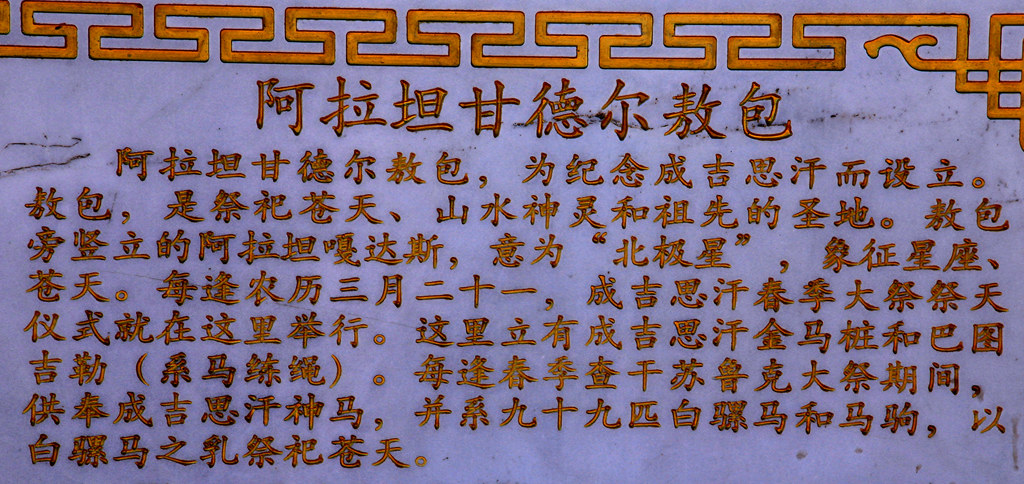 阿拉坦甘德尔敖包
阿拉坦甘德尔敖包，为纪念成吉思汗而设立。
敖包，是祭祀苍天、山水神灵和祖先的圣地。敖包
旁竖立的阿拉坦嘎达斯，意为“北极星”，象征星座、
苍天。每逢农历三月二十一，成吉思汗春季大祭祭天
仪式就在这里举行。这里立有成吉思汗金马桩和巴图
吉勒（系马练绳）。每逢春季查干苏鲁克大祭期间，
供奉成吉思汗神马，并系九十九匹白骒马和马驹，以
白骒马之乳祭祀苍天。